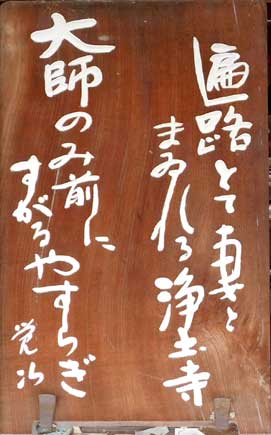 遍路とて妻と
まゐれる浄土寺
大師のみ前に
すがるやすらぎ
覚次